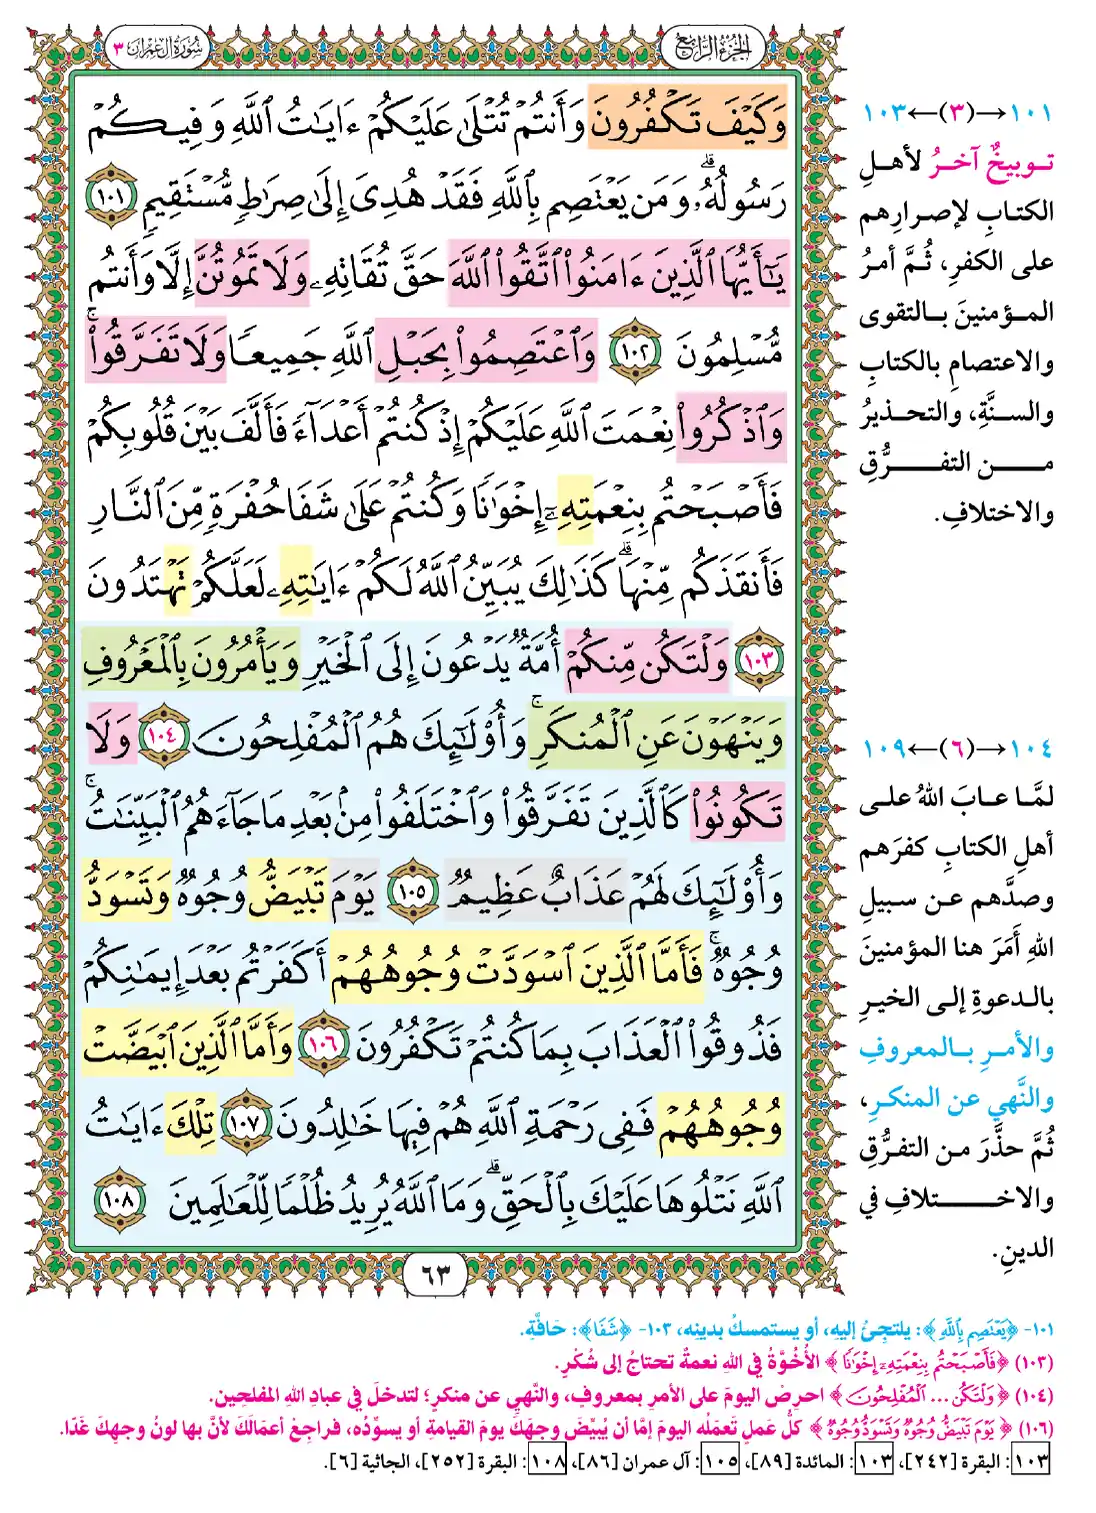 الجزء الرابع
سورة آل عمران ٣
وَكَيْفَ تَكْفُرُونَ وَأَنتُمْ تُتْلَىٰ عَلَيْكُمْ ءَايَـٰتُ ٱللَّهِ وَفِيكُمْ
رَسُولُهُۥ ۗ وَمَن يَعْتَصِم بِٱللَّهِ فَقَدْ هُدِىَ إِلَىٰ صِرَٰطٍ مُّسْتَقِيمٍ ١٠١
يَـٰٓأَيُّهَا ٱلَّذِينَ ءَامَنُوا۟ ٱتَّقُوا۟ ٱللَّهَ حَقَّ تُقَاتِهِۦ وَلَا تَمُوتُنَّ إِلَّا وَأَنتُم
مُّسْلِمُونَ ١٠٢ وَٱعْتَصِمُوا۟ بِحَبْلِ ٱللَّهِ جَمِيعًا وَلَا تَفَرَّقُوا۟ ۚ
وَٱذْكُرُوا۟ نِعْمَتَ ٱللَّهِ عَلَيْكُمْ إِذْ كُنتُمْ أَعْدَآءً فَأَلَّفَ بَيْنَ قُلُوبِكُمْ
فَأَصْبَحْتُم بِنِعْمَتِهِۦٓ إِخْوَٰنًا وَكُنتُمْ عَلَىٰ شَفَا حُفْرَةٍ مِّنَ ٱلنَّارِ
فَأَنقَذَكُم مِّنْهَا ۗ كَذَٰلِكَ يُبَيِّنُ ٱللَّهُ لَكُمْ ءَايَـٰتِهِۦ لَعَلَّكُمْ تَهْتَدُونَ
١٠٣ وَلْتَكُن مِّنكُمْ أُمَّةٌ يَدْعُونَ إِلَى ٱلْخَيْرِ وَيَأْمُرُونَ بِٱلْمَعْرُوفِ
وَيَنْهَوْنَ عَنِ ٱلْمُنكَرِ ۚ وَأُو۟لَـٰٓئِكَ هُمُ ٱلْمُفْلِحُونَ ١٠٤ وَلَا
تَكُونُوا۟ كَٱلَّذِينَ تَفَرَّقُوا۟ وَٱخْتَلَفُوا۟ مِنۢ بَعْدِ مَا جَآءَهُمُ ٱلْبَيِّنَـٰتُ ۚ
وَأُو۟لَـٰٓئِكَ لَهُمْ عَذَابٌ عَظِيمٌ ١٠٥ يَوْمَ تَبْيَضُّ وُجُوهٌ وَتَسْوَدُّ
وُجُوهٌ ۚ فَأَمَّا ٱلَّذِينَ ٱسْوَدَّتْ وُجُوهُهُمْ أَكَفَرْتُم بَعْدَ إِيمَـٰنِكُمْ
فَذُوقُوا۟ ٱلْعَذَابَ بِمَا كُنتُمْ تَكْفُرُونَ ١٠٦ وَأَمَّا ٱلَّذِينَ ٱبْيَضَّتْ
وُجُوهُهُمْ فَفِى رَحْمَةِ ٱللَّهِ هُمْ فِيهَا خَـٰلِدُونَ ١٠٧ تِلْكَ ءَايَـٰتُ
ٱللَّهِ نَتْلُوهَا عَلَيْكَ بِٱلْحَقِّ ۗ وَمَا ٱللَّهُ يُرِيدُ ظُلْمًا لِّلْعَـٰلَمِينَ ١٠٨
٦٣
١٠١→(٣)←١٠٣
توبيخٌ آخرُ لأهلِ
الكتابِ لإصرارِهم
على الكفرِ، ثُمَّ أمرُ
المؤمنينَ بالتقوى
والاعتصامِ بالكتابِ
والسنَّةِ، والتحذيرُ
من التفرُّقِ
والاختلافِ.
١٠٤→(٦)←١٠٩
لمَّا عابَ اللهُ على
أهلِ الكتابِ كفرَهم
وصدَّهم عن سبيلِ
اللهِ أَمَرَ هنا المؤمنينَ
بالدعوةِ إلى الخيرِ
والأمرِ بالمعروفِ
والنَّهيِ عن المنكرِ،
ثُمَّ حذَّرَ من التفرُّقِ
والاختلافِ في
الدينِ.
١٠١- ﴿يَعْتَصِم بِٱللَّهِ﴾: يلتجِئُ إليه، أو يستمسكُ بدينِه، ١٠٣- ﴿شَفَا﴾: حَافَّةِ.
(١٠٣) ﴿فَأَصْبَحْتُم بِنِعْمَتِهِۦٓ إِخْوَٰنًا﴾ الأُخُوَّةُ في اللهِ نعمةٌ تحتاجُ إلى شُكْرٍ.
(١٠٤) ﴿وَلْتَكُن ... ٱلْمُفْلِحُونَ﴾ احرِصْ اليومَ على الأمرِ بمعروفٍ، والنَّهيِ عن منكرٍ؛ لتدخلَ في عبادِ اللهِ المفلحين.
(١٠٦) ﴿يَوْمَ تَبْيَضُّ وُجُوهٌ وَتَسْوَدُّ وُجُوهٌ﴾ كلُّ عملٍ تَعمَلُه اليومَ إمَّا أن يُبيِّضَ وجهَكَ يومَ القيامةِ أو يسوِّدَه، فراجِعْ أعمَالَكَ لأنَّ بها لونُ وجهِكَ غَدًا.
١٠٣: البقرة [٢٤٢]، ١٠٣: المائدة [٨٩]، ١٠٥: آل عمران [٨٦]، ١٠٨: البقرة [٢٥٢]، الجاثية [٦].